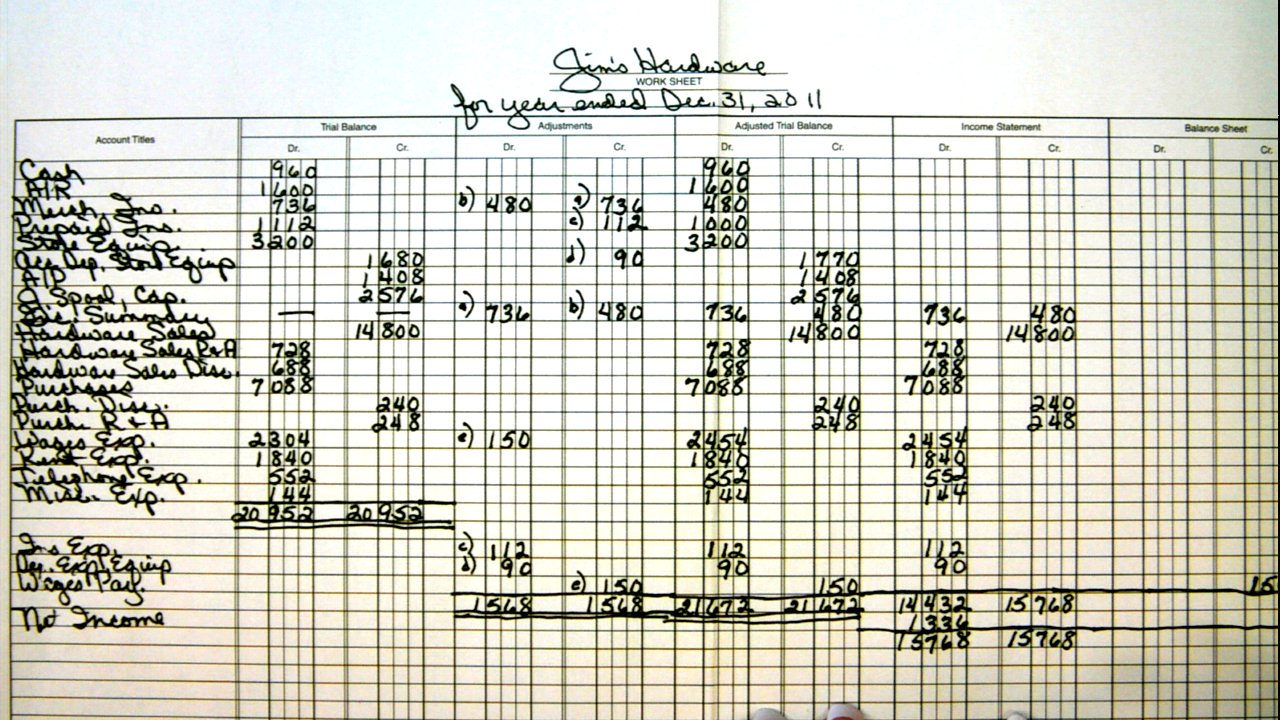 Jim's Hardware
WORK SHEET
for year ended Dec. 31, 2011
Account Titles Trial Balance Adjustments Adjusted Trial Balance Income Statement Balance Sheet
Dr. Cr. Dr. Cr. Dr. Cr. Dr. Cr. Dr. Cr.
Cash 960 960
A/R 1600 1600
Merch. Inv. 736 b) 480 a) 736 480
Prepaid Ins. 1112 c) 112 1000
Store Equip. 3200 3200
Acc. Dep. Store Equip 1680 d) 90 1770
A/P 1408 1408
J. Spool, Cap. 2576 2576
Inc. Summary — — a) 736 b) 480 736 480 736 480
Hardware Sales 14800 14800 14800
Hardware Sales R+A 728 728 728
Hardware Sales Disc. 688 688 688
Purchases 7088 7088 7088
Purch. Disc. 240 240 240
Purch. R+A 248 248 248
Wages Exp. 2304 e) 150 2454 2454
Rent Exp. 1840 1840 1840
Telephone Exp. 552 552 552
Misc. Exp. 144 144 144
20952 20952
Ins Exp. c) 112 112 112
Dep. Exp. Equip d) 90 90 90
Wages Pay. e) 150 150 15
1568 1568 21672 21672 14432 15768
Net Income 1336
15768 15768